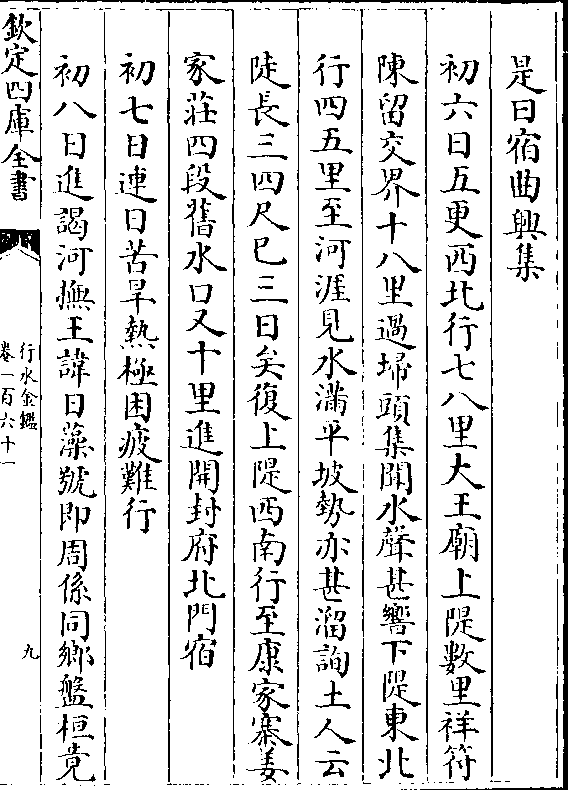 是日宿曲興集
初六日五更西北行七八里大王廟上隄數里祥符
陳留交界十八里過埽頭集聞水聲甚響下隄東北
行四五里至河涯見水滿平坡勢亦甚溜詢土人云
陡長三四尺已三日矣復上隄西南行至康家寨姜
家莊四段舊水口又十里進開封府北門宿
初七日連日苦旱熱極困疲難行
初八日進謁河撫王諱日藻號即周係同鄉盤桓竟
欽定四庫全書
行水金鑑
卷一百六十一
九